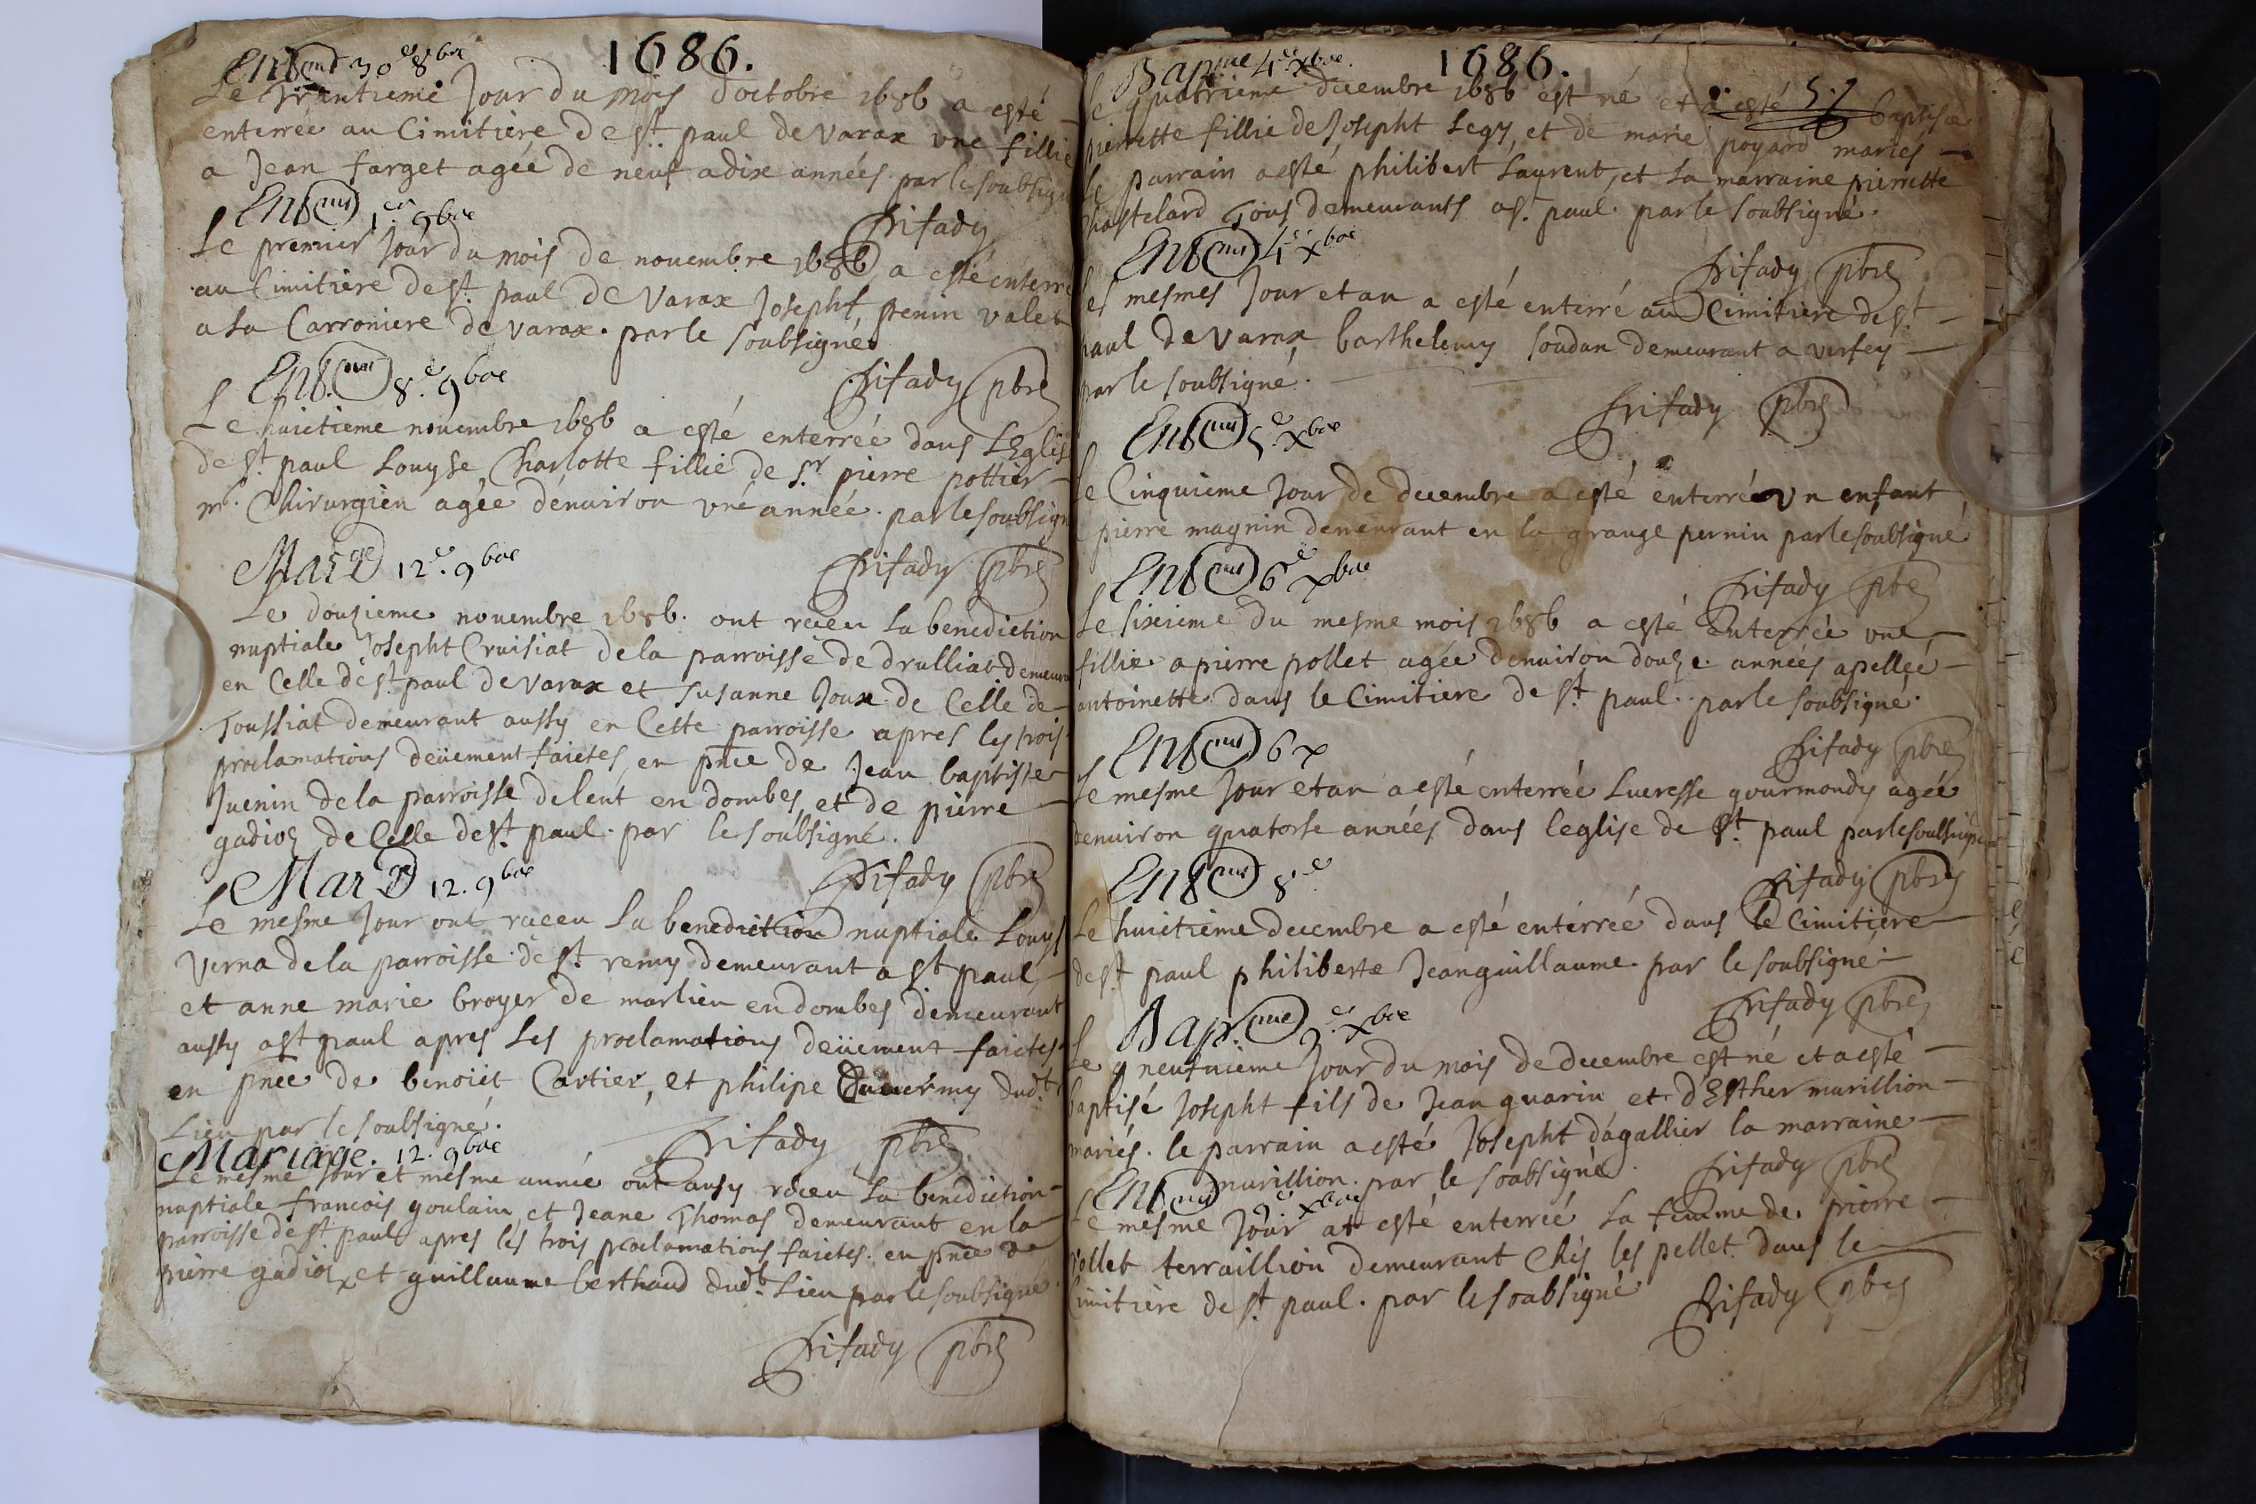 1686.
Ent.mt 30e 8bre
Le trantieme Jour du mois d'octobre 1686 a esté
enterrée au Cimitiere de st. paul de varax une fillie
a Jean farget agée de neuf a dix années par le soubsigné
Trifady
Ent.mt 1er. 9bre
Le premier Jour du mois de novembre 1686 a esté enterré
au Cimitiere de st. paul de varax Josepht, penin valet
a la Carroniere de varax. par le soubsigné.
Trifady pbre
Ent.mt 8e. 9bre
Le huictieme novembre 1686 a esté enterrée dans L'Eglise
de st. paul Louyse Charlotte fillie de Sr. pierre pottier
mr. Chirurgien agée d'environ une année. par le soubsigné
Trifady pbre
Mar.ge 12e. 9bre
Le douzieme novembre 1686. ont receu la benediction
nuptiale Josepht Cruisiat de la parroisse de drulliat demeurant
en Celle de st. paul de varax et Susanne Joux de Celle de
Toussiat demeurant aussy en Cette parroisse apres les trois
proclamations deüement faictes, en pnce de Jean baptiste
Juenin de la parroisse de lent en dombes, et de pierre
gadioz de Celle de st. paul. par le soubsigné.
Trifady pbre
Mar.ge 12. 9bre
Le mesme Jour ont receu la benediction nuptiale Louys
verna de la parroisse de st. remy demeurant a st paul
et anne marie broyer de marlieu en dombes demeurant
aussy a st paul apres les proclamations deüement faictes
en pnce de benoict Cartier, et philipe dud.t
Lieu par le soubsigné.
Trifady pbre
Mariage. 12. 9bre
Le mesme Jour et mesme année ont aussy receu la benediction
nuptiale francois goulain, et Jeane Thomas demeurant en la
parroisse de st paul apres les trois proclamations faictes. en pnce de
pierre gadioz et guillaume berthaud dud.t Lieu par le soubsigné.
Trifady pbre
1686.
Bap.me 4e. Xbre.
Le quatrieme decembre 1686 est né et a esté baptisée
pierrette fillie de Josepht Legy, et de marie poyard mariés
le parrain a esté philibert Laurent, et la marraine pierrette
chastelard Tous demeurants a st. paul. par le soubsigné.
Trifady pbre
Ent.mt 4e Xbre
Les mesmes Jour et an a esté enterré au Cimitiere de st.
paul de varax barthelemy soudan demeurant a versey
par le soubsigné.
Trifady pbre
Ent.mt 5e. Xbre
Le Cinquieme Jour de decembre a esté enterré un enfant
pierre magnin demeurant en la grange pernin par le soubsigné
Trifady pbre
Ent.mt 6e Xbre
Le sixieme du mesme mois 1686 a esté enterrée une
fillie a pierre pollet agée d'environ douze années apellée
antoinette dans le Cimitiere de st. paul. par le soubsigné.
Trifady pbre
Ent.mt 6 X
Le mesme Jour et an a esté enterrée Lucresse gourmondy agée
d'environ quatorse années dans l'eglise de st. paul par le soubsigné
Trifady pbre
Ent.mt 8.e
Le huictieme decembre a esté enterrée dans le Cimitiere
de st. paul philiberte Jeanguillaume. par le soubsigné
Trifady pbre
Bap.me 9e. Xbre
Le neufvieme Jour du mois de decembre est né et a esté
baptisé Josepht fils de Jean guarin et d'Esther murillion
mariés. le parrain a esté Josepht dagallier la marraine
murillion. par le soubsigné.
Trifady pbre
Ent.mt 9e. Xbre
Le mesme Jour at esté enterrée la femme de pierre
pollet terraillion demeurant Chés les pellet. dans le
Cimitiere de st. paul. par le soubsigné
Trifady pbre